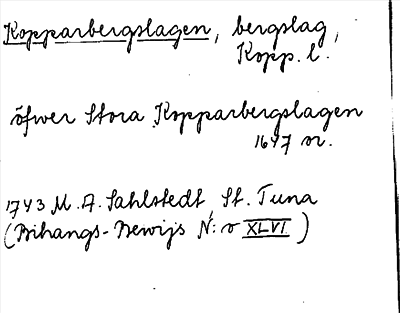 Kopparbergslagen, bergslag,
Kopp. l.
öfwer Stora Kopparbergslagen
1647 or.
1743 M. A. Sahlstedt St. Tuna
(Bihangs-Bewijs N:o XLVI)